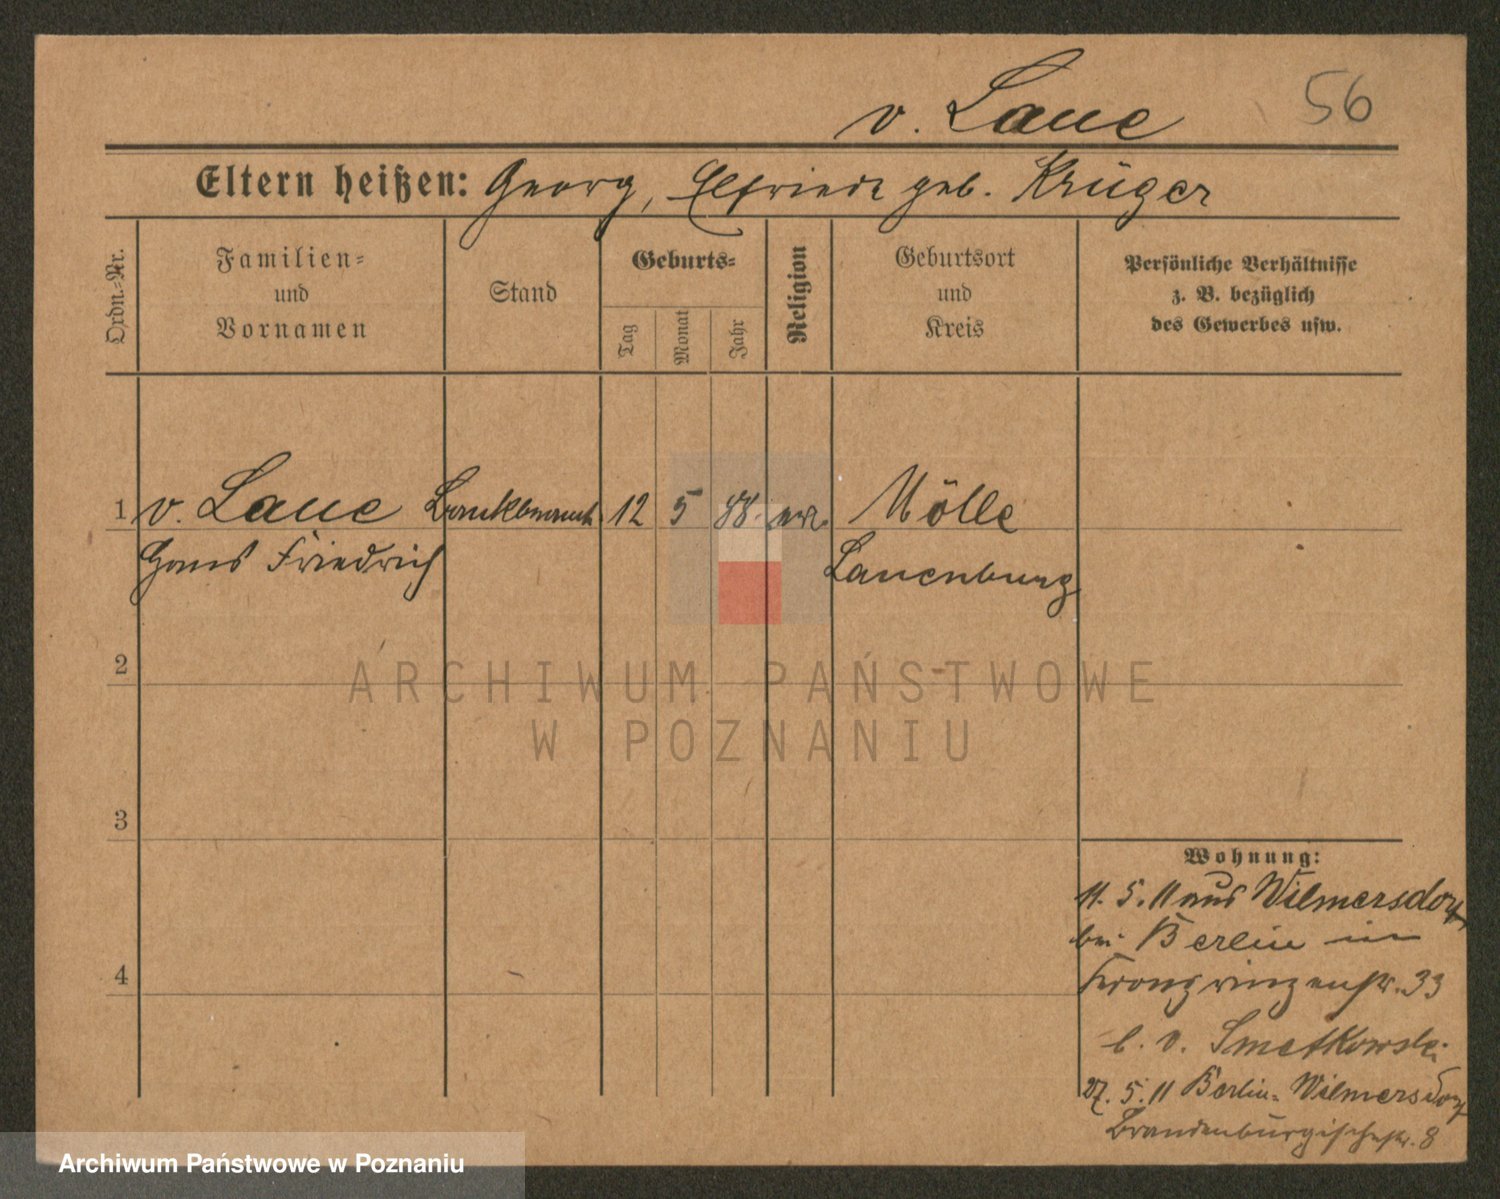 v. Laue 56
Eltern heißen: Georg, Elfriede geb. Krüger
Ordn.-Nr.
Familien-
und
Vornamen
Stand
Geburts-
Tag
Monat
Jahr
Religion
Geburtsort
und
Kreis
Persönliche Verhältnisse
z. B. bezüglich
des Gewerbes usw.
1 v. Laue Bankbeamt. 12 5 88. Mölle
Hans Friedrich Lauenburg
2
ARCHIWUM PAŃSTWOWE
W POZNANIU
3
Wohnung:
11. 5. 11 aus Wilmersdorf
bei Berlin in
Kronprinzenstr. 33
b. v. Smetkowski
27. 5. 11 Berlin-Wilmersdorf
Brandenburgischestr. 8
4
Archiwum Państwowe w Poznaniu